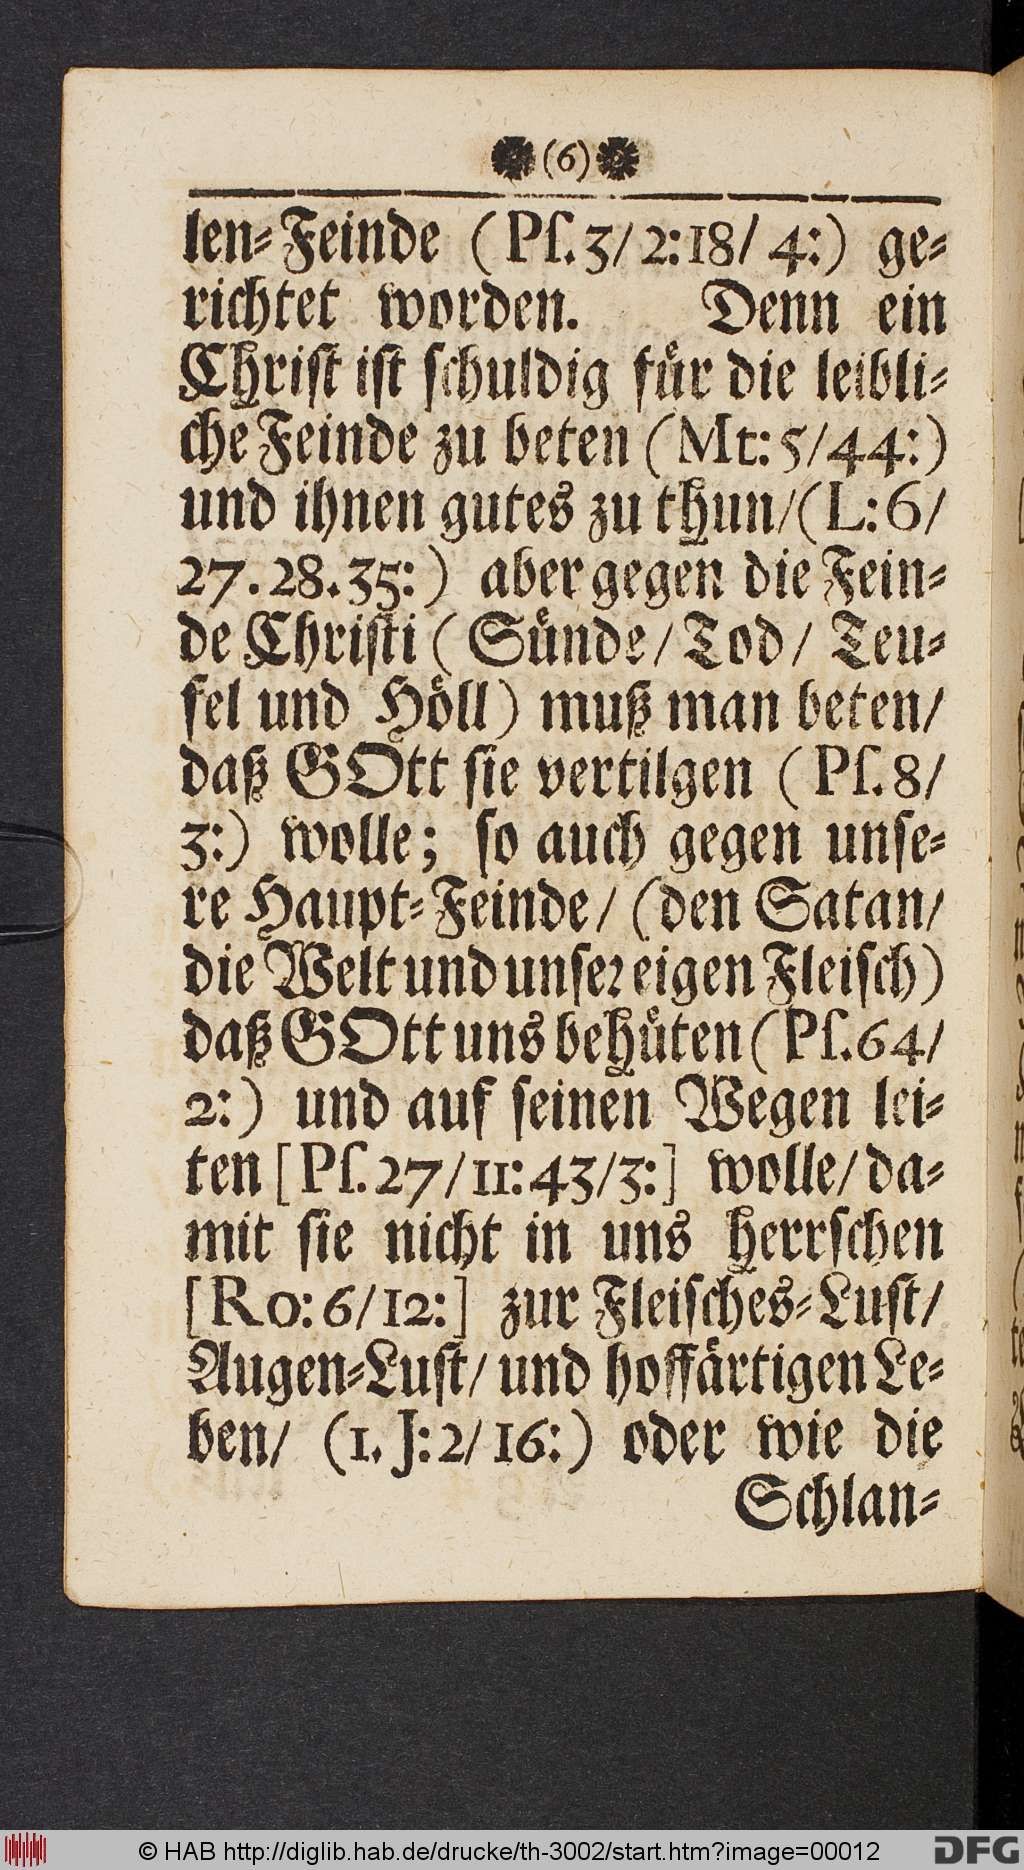 (6)
len-Feinde (Pſ. 3/ 2: 18/ 4:) ge-
richtet worden. Denn ein
Chriſt iſt ſchuldig fuͤr die leibli-
che Feinde zu beten (Mt: 5/44:)
und ihnen gutes zu thun/(L: 6/
27. 28. 35:) aber gegen die Fein-
de Chriſti (Suͤnde/ Tod/ Teu-
fel und Hoͤll) muß man beten/
daß GOtt ſie vertilgen (Pſ. 8/
3:) wolle; ſo auch gegen unſe-
re Haupt-Feinde/ (den Satan/
die Welt und unſer eigen Fleiſch)
daß GOtt uns behuͤten (Pſ. 64/
2:) und auf ſeinen Wegen lei-
ten [Pſ. 27/11: 43/3:] wolle/ da-
mit ſie nicht in uns herrſchen
[Ro: 6/12:] zur Fleiſches-Luſt/
Augen-Luſt/ und hoffaͤrtigen Le-
ben/ (1. J: 2/ 16:) oder wie die
Schlan-
© HAB http://diglib.hab.de/drucke/th-3002/start.htm?image=00012
DFG